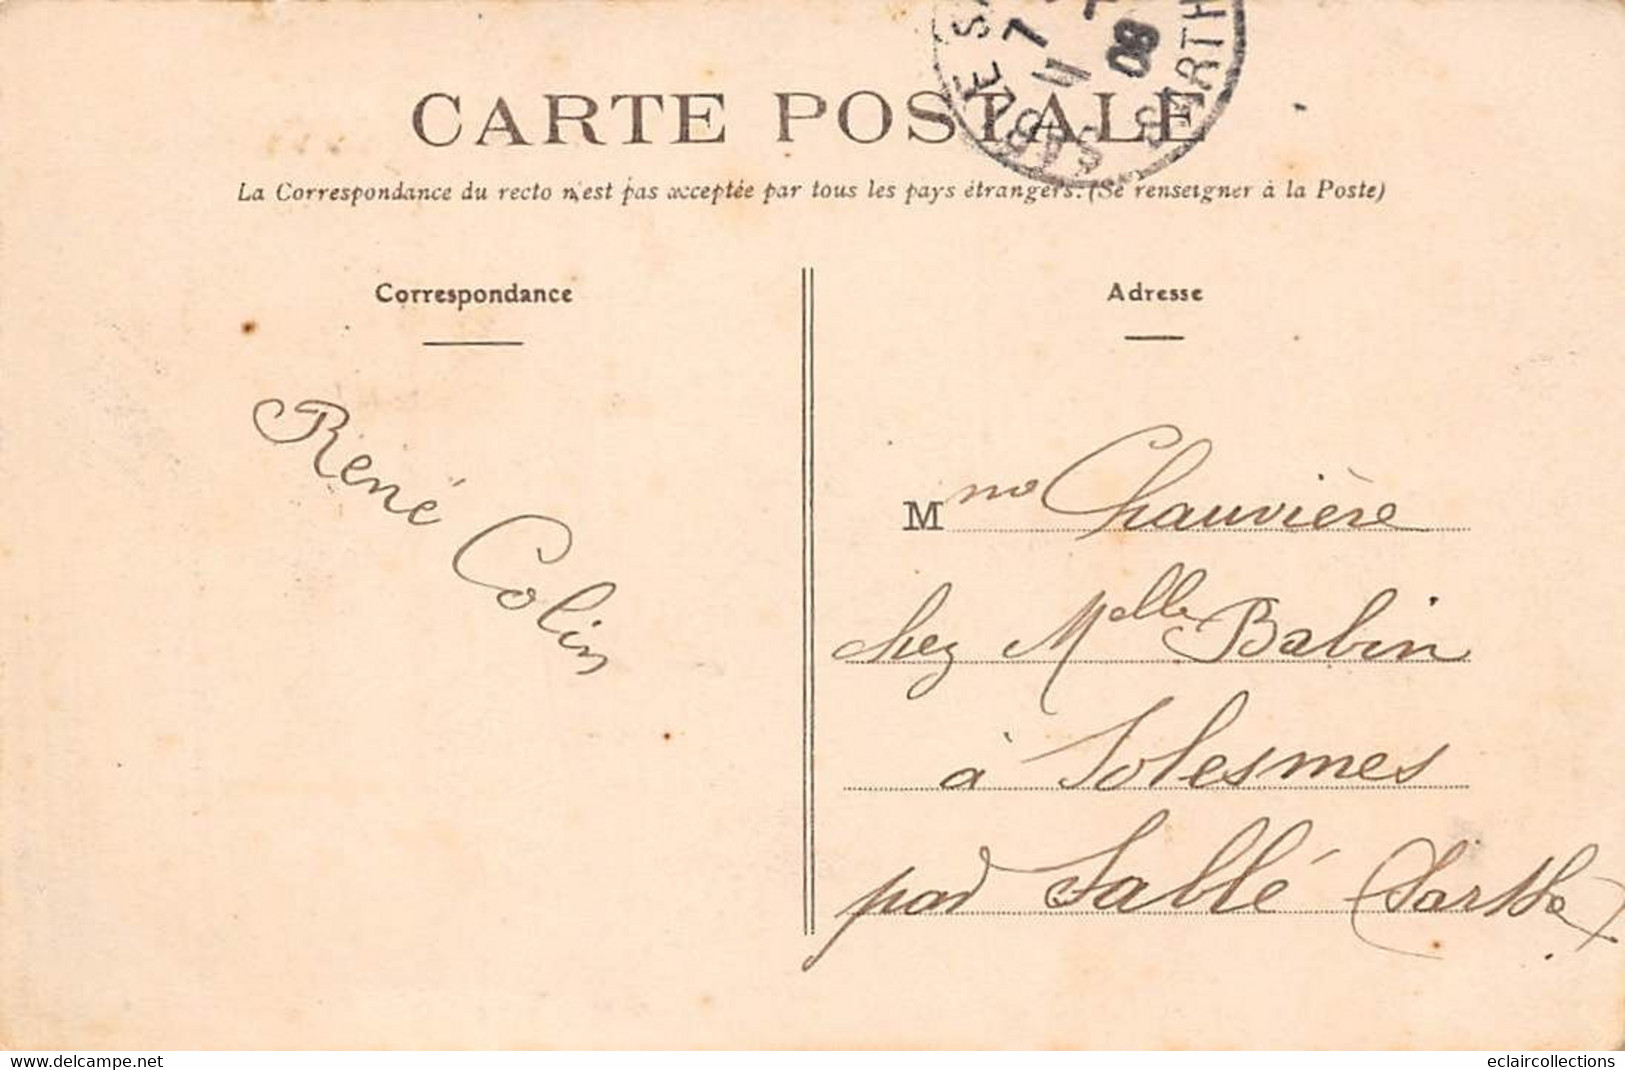 CARTE POSTALE
SABLÉ SARTHE
7
11
08
La Correspondance du recto n'est pas acceptée par tous les pays étrangers. (Se renseigner à la Poste)
Correspondance
René Colin
Adresse
Mme Chauvière
chez Melle Babin
à Solesmes
par Sablé (Sarthe)
www.delcampe.net
eclaircollections